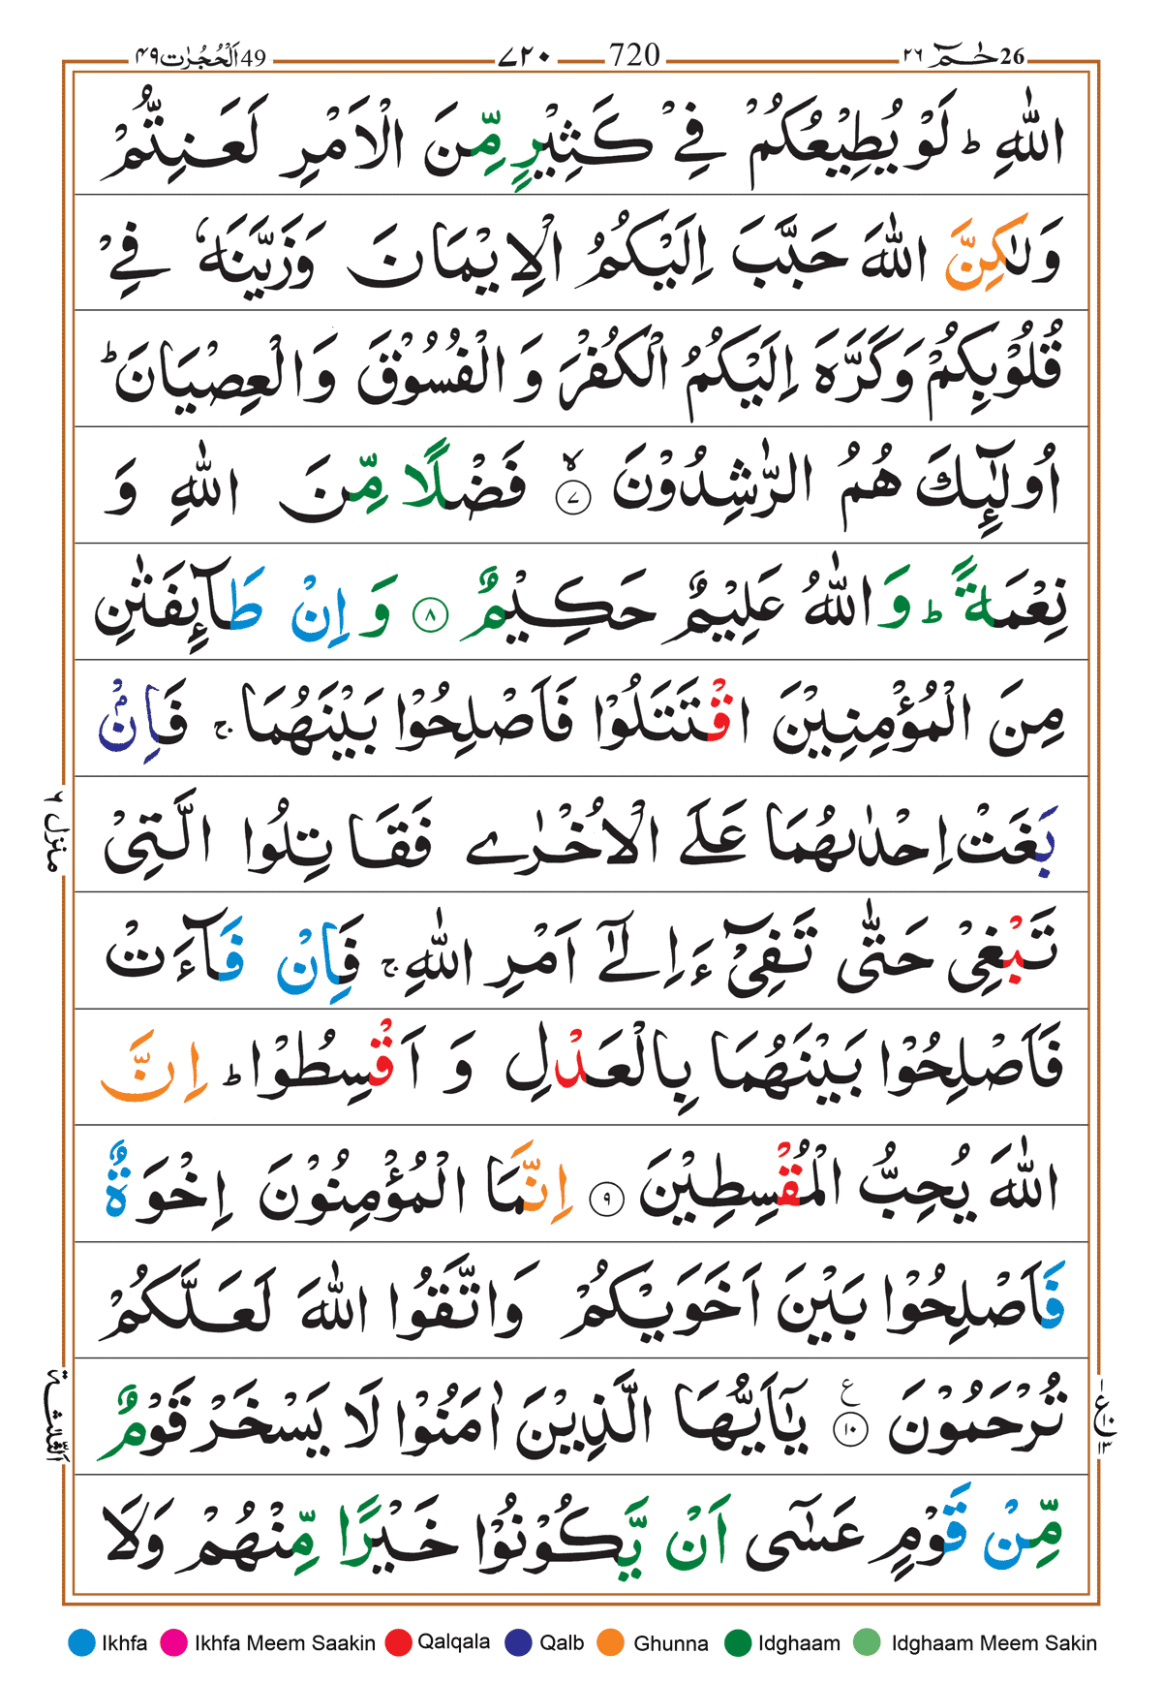 اَلْحُجُرٰت ۴۹ 49 ۷۲۰ 720 حٰمٓ ۲۶ 26
اللّٰهِ ؕ لَوْ يُطِيْعُكُمْ فِيْ كَثِيْرٍ مِّنَ الْاَمْرِ لَعَنِتُّمْ
وَلٰكِنَّ اللّٰهَ حَبَّبَ اِلَيْكُمُ الْاِيْمَانَ وَزَيَّنَهٗ فِيْ
قُلُوْبِكُمْ وَكَرَّهَ اِلَيْكُمُ الْكُفْرَ وَ الْفُسُوْقَ وَالْعِصْيَانَ ؕ
اُولٰٓئِكَ هُمُ الرّٰشِدُوْنَ ۙ ۷ فَضْلًا مِّنَ اللّٰهِ وَ
نِعْمَةً ؕ وَاللّٰهُ عَلِيْمٌ حَكِيْمٌ ۸ وَ اِنْ طَآئِفَتٰنِ
مِنَ الْمُؤْمِنِيْنَ اقْتَتَلُوْا فَاَصْلِحُوْا بَيْنَهُمَا ۚ فَاِنْۢ
بَغَتْ اِحْدٰىهُمَا عَلَے الْاُخْرٰے فَقَاتِلُوا الَّتِيْ
تَبْغِيْ حَتّٰى تَفِيْٓءَ اِلٰٓے اَمْرِ اللّٰهِ ۚ فَاِنْ فَآءَتْ
فَاَصْلِحُوْا بَيْنَهُمَا بِالْعَدْلِ وَ اَقْسِطُوْا ؕ اِنَّ
اللّٰهَ يُحِبُّ الْمُقْسِطِيْنَ ۹ اِنَّمَا الْمُؤْمِنُوْنَ اِخْوَةٌ
فَاَصْلِحُوْا بَيْنَ اَخَوَيْكُمْ وَاتَّقُوا اللّٰهَ لَعَلَّكُمْ
تُرْحَمُوْنَ ۱۰ ع يٰٓاَيُّهَا الَّذِيْنَ اٰمَنُوْا لَا يَسْخَرْ قَوْمٌ
مِّنْ قَوْمٍ عَسٰٓى اَنْ يَّكُوْنُوْا خَيْرًا مِّنْهُمْ وَلَا
منزل ۶
الثلثة
ع ۱۰ ۱۳
Ikhfa Ikhfa Meem Saakin Qalqala Qalb Ghunna Idghaam Idghaam Meem Sakin